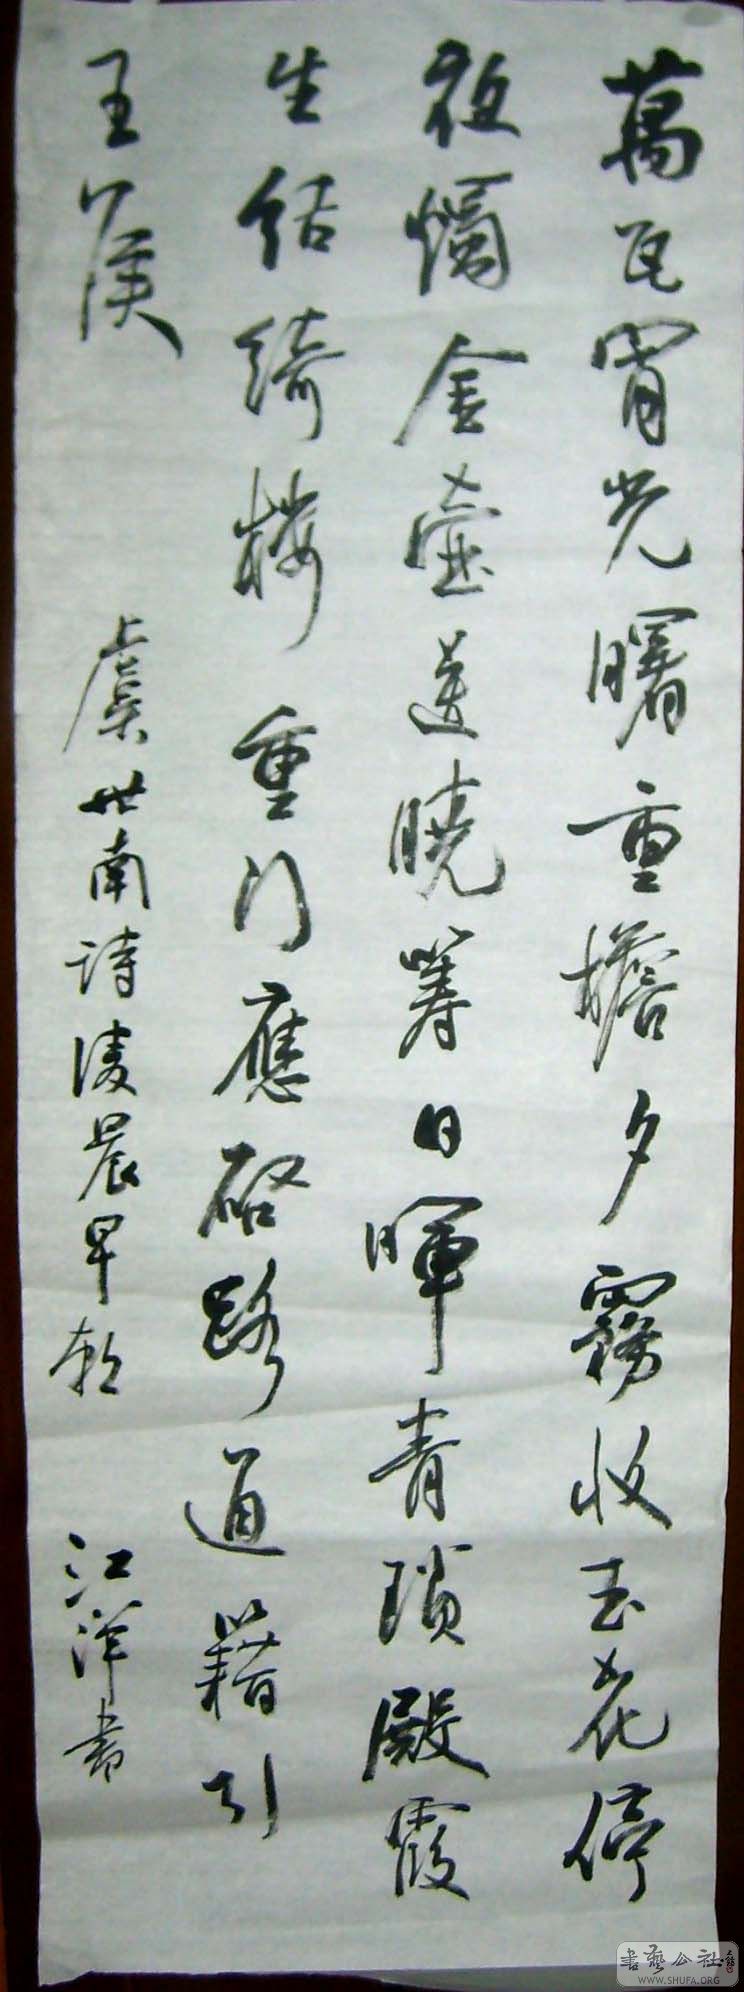 萬瓦宵光曙重檐夕霧收玉花停
夜燭金壺送曉籌日暉青瑣殿霞
生結綺樓重门應啓路通籍引
王公侯
虞世南诗凌晨早朝
江洋书
書藝公社
WWW.SHUFA.ORG